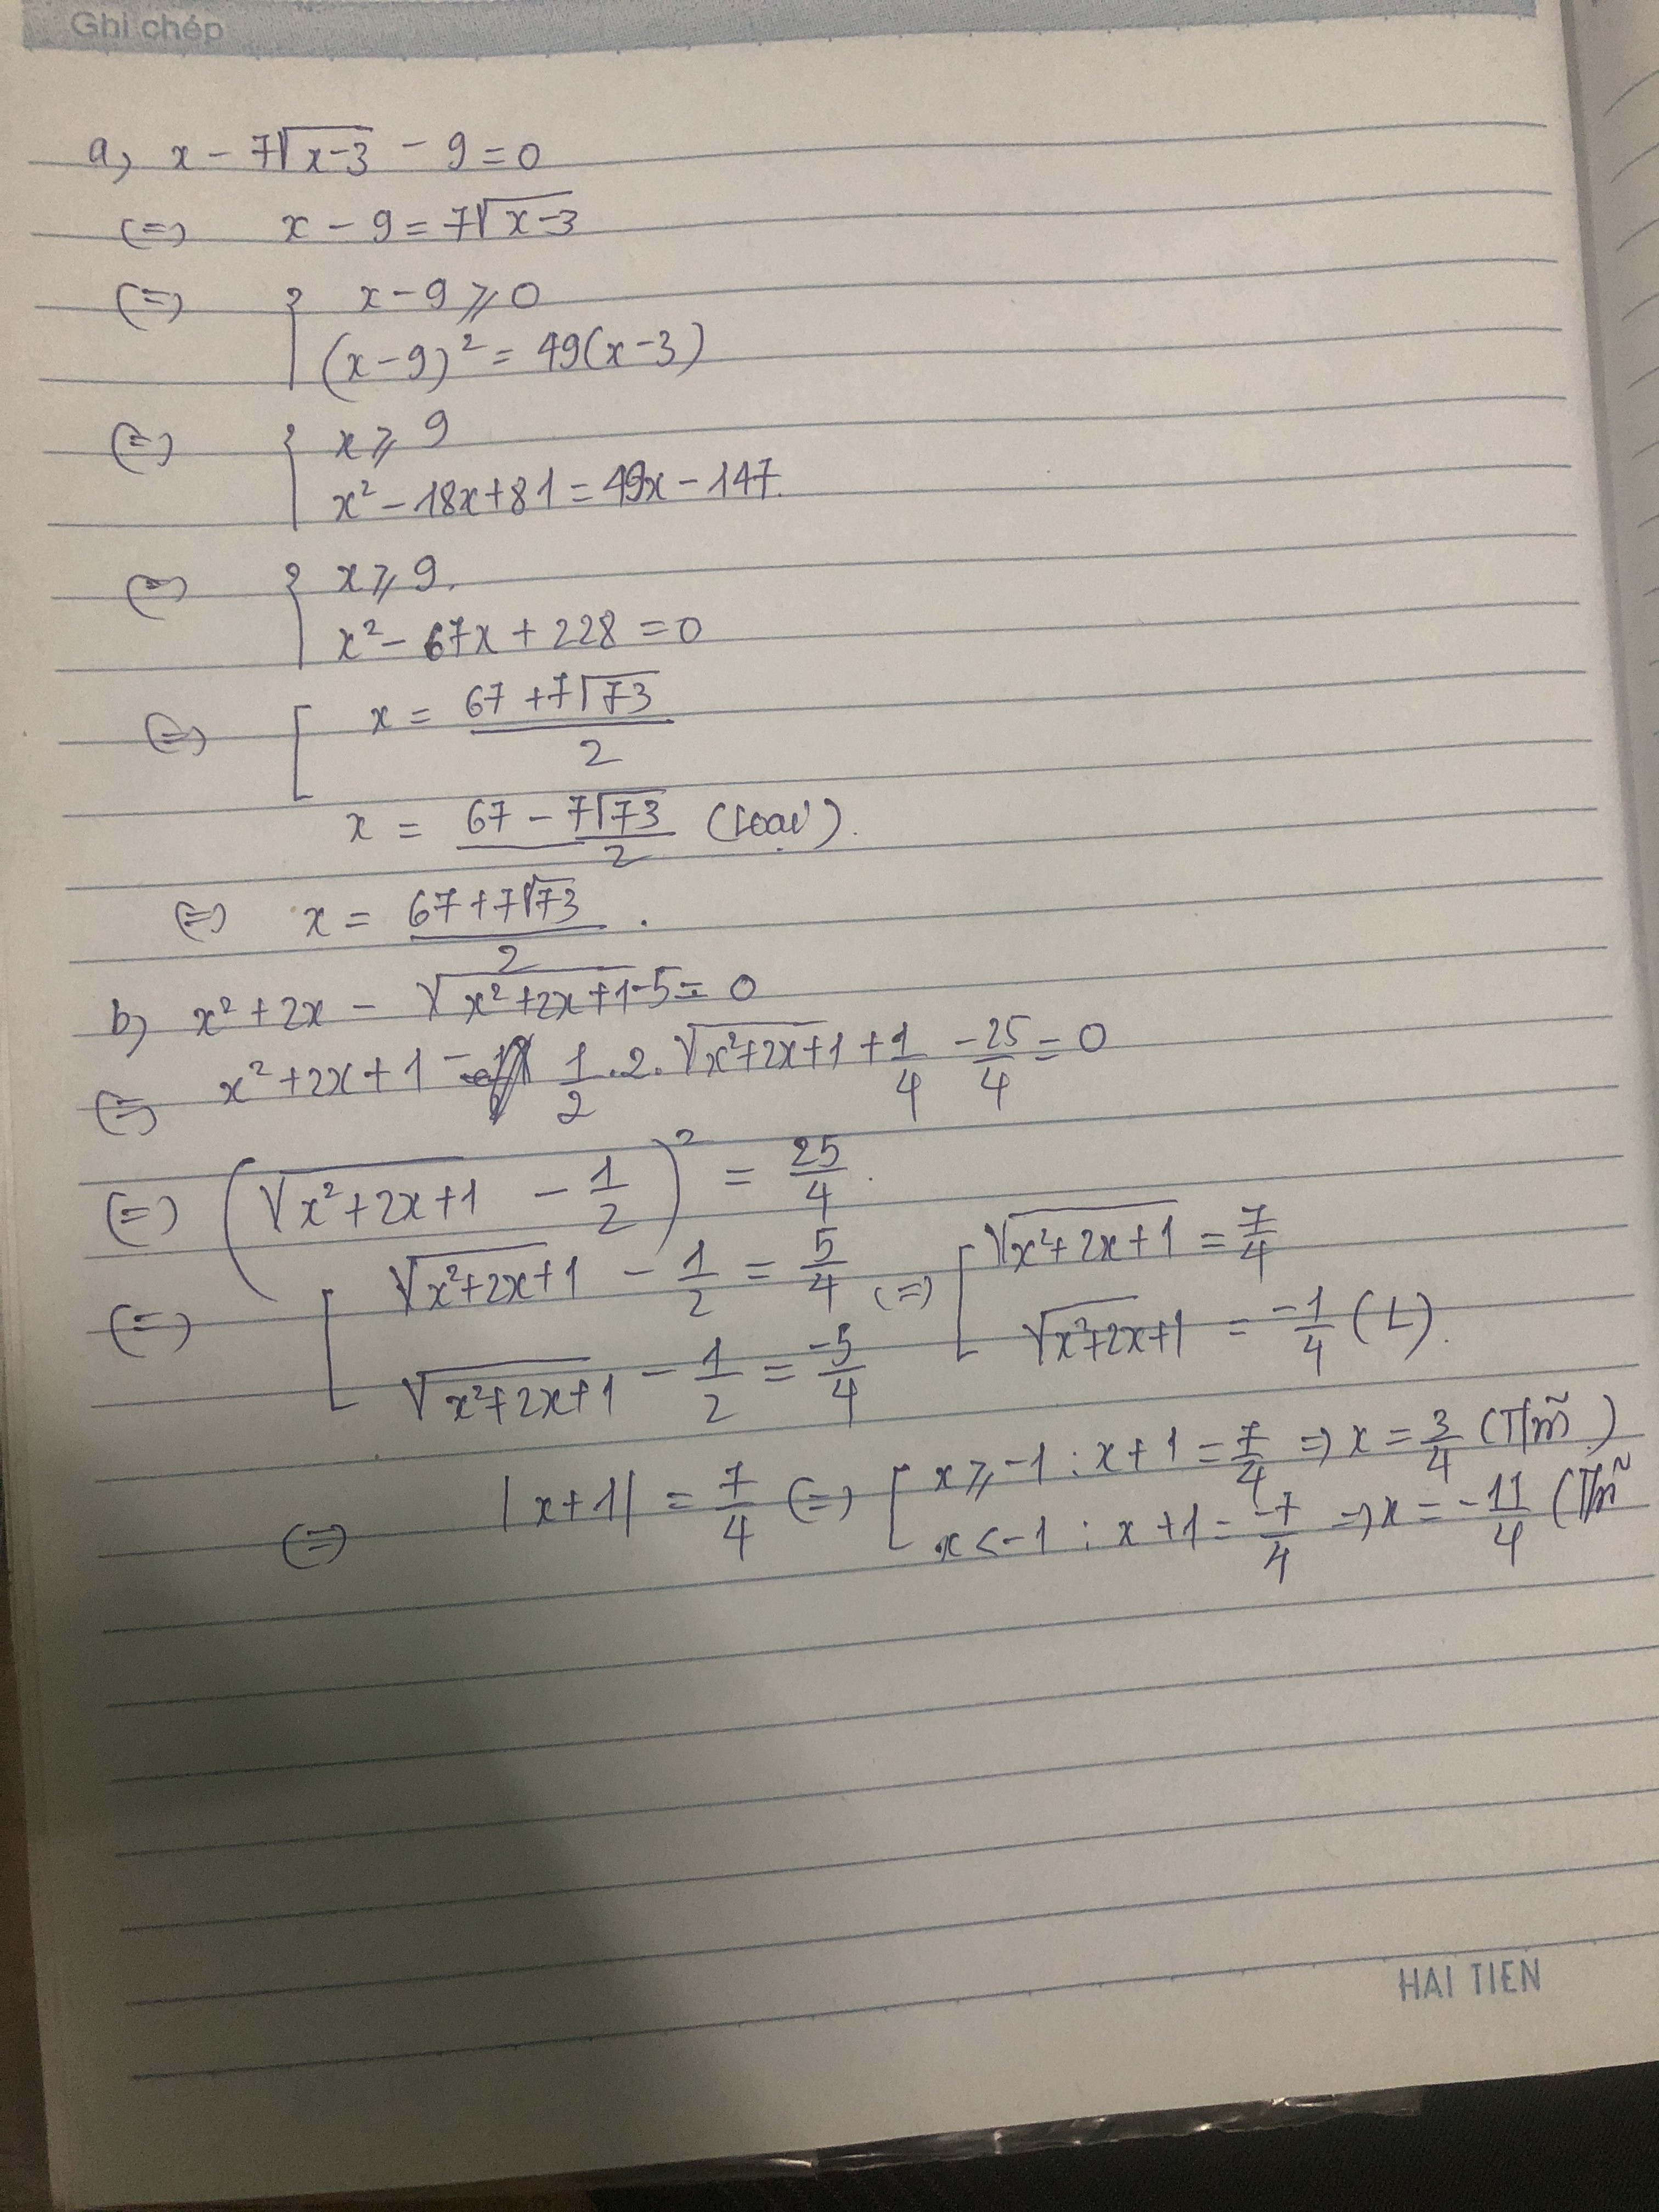 Ghi chép
a, x - 7√(x-3) - 9 = 0
(=) x - 9 = 7√(x-3)
(=) { x - 9 ⩾ 0
(x-9)² = 49(x-3)
(=) { x ⩾ 9
x² - 18x + 81 = 49x - 147.
(=) { x ⩾ 9.
x² - 67x + 228 = 0
(=) [ x = (67 + 7√73)/2
x = (67 - 7√73)/2 (Loại).
(=) x = (67 + 7√73)/2 .
b, x² + 2x - √(x² + 2x + 1) - 5 = 0
(=) x² + 2x + 1 - 1/2 . 2 . √(x² + 2x + 1) + 1/4 - 25/4 = 0
(=) (√(x² + 2x + 1) - 1/2)² = 25/4.
(=) [ √(x² + 2x + 1) - 1/2 = 5/4 (=) [ √(x² + 2x + 1) = 7/4
√(x² + 2x + 1) - 1/2 = -5/4 √(x² + 2x + 1) = -1/4 (L).
(=) |x + 1| = 7/4 (=) [ x ⩾ -1 : x + 1 = 7/4 => x = 3/4 (T/m̃)
x < -1 : x + 1 = -7/4 => x = -11/4 (T/m̃
HAI TIEN